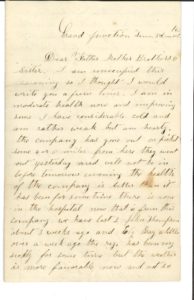 Grand Junction
Dear Father Mother Brothers &
Sister, I am unoccupied this
evening so I thought I would
write you a few lines. I am in
moderate health now and improving
some I have considerable cold and
am rather weak but am hearty
the company has gon out on picket
some 20 miles from here they went
out yesterday and will not be in
before tomorrow evening the health
of the company is better than it
has been for some time. there is now
in the hospital now that is from this
company we have lost
about 3 weeks ago and
over a week ago the reg. has been very
sickly for some time but the weather
is more favorable now and not so